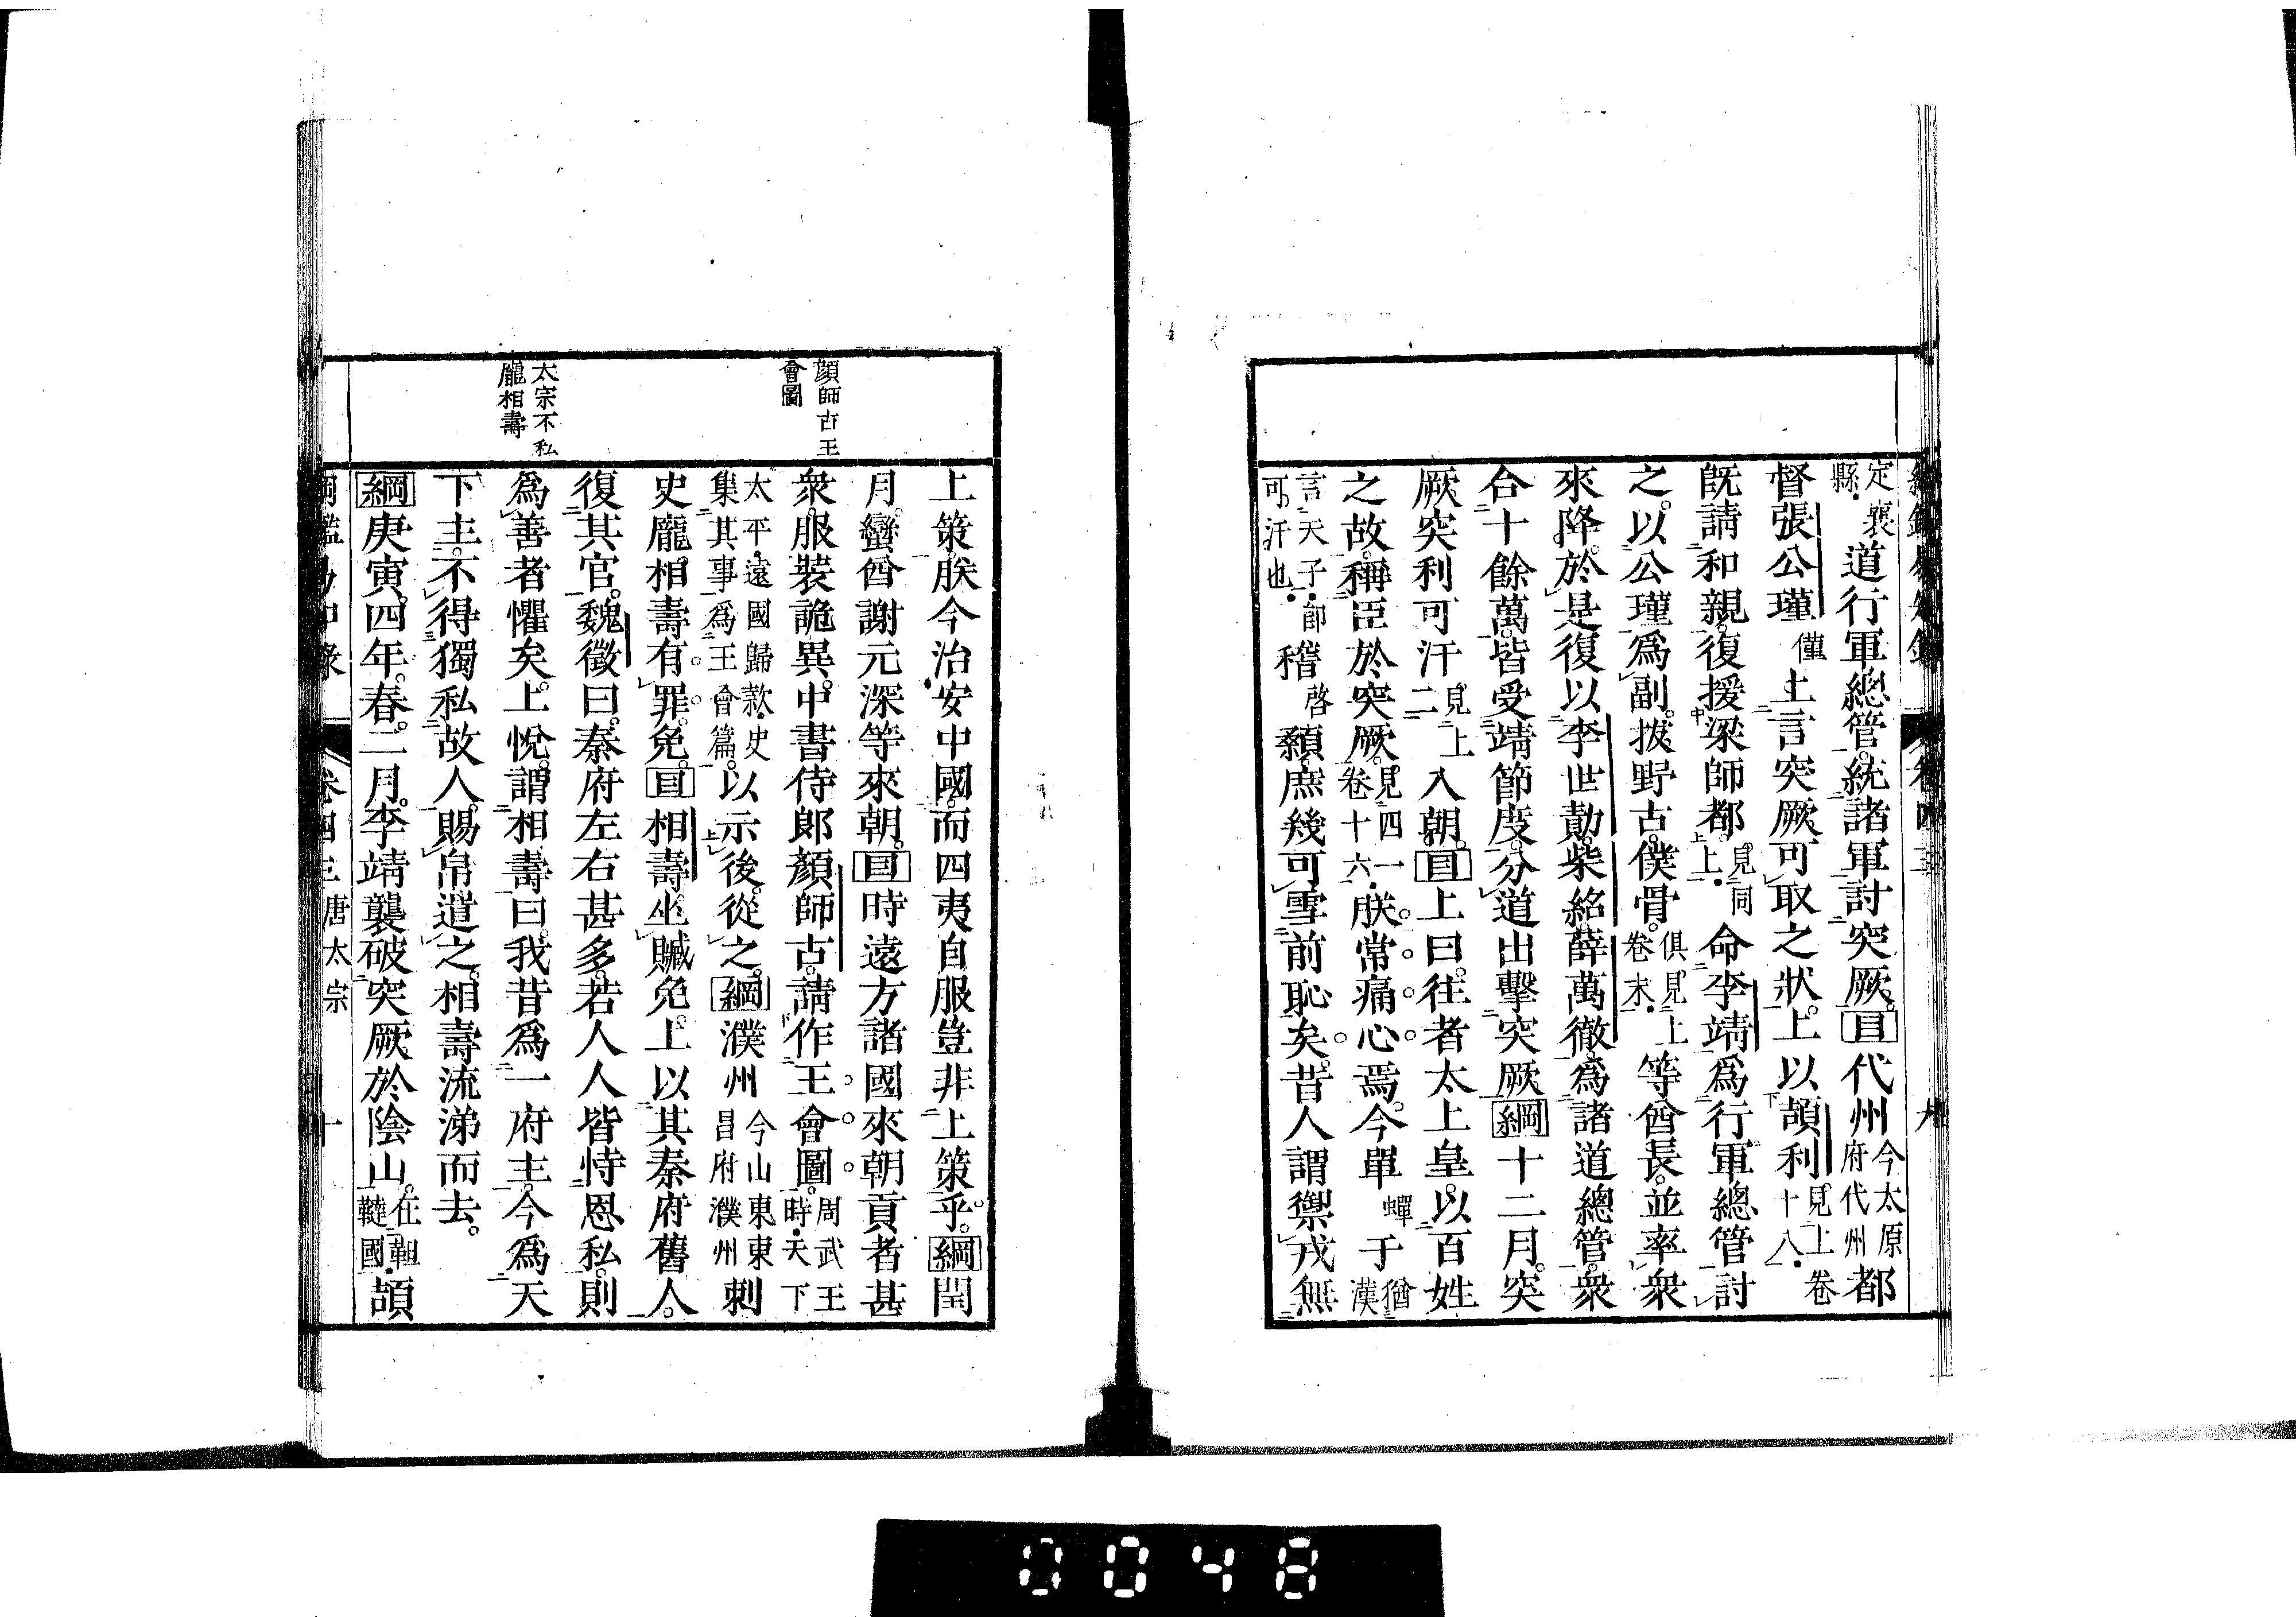 綱鑑易知錄 卷四三 九
定襄縣。道行軍總管。統諸軍討突厥。目代州今太原府代州都
督張公瑾僅上言突厥可取之狀。上以頡利見上卷十八。
既請和親。復援梁師都。見同上。命李靖爲行軍總管討
之。以公瑾爲副。拔野古。僕骨。俱見上卷末。等酋長。並率衆
來降。於是復以李世勣。柴紹。薛萬徹。爲諸道總管。衆
合十餘萬。皆受靖節度。分道出擊突厥。綱十二月。突
厥突利可汗見上二入朝。目上曰。往者太上皇。以百姓
之故。稱臣於突厥。見四一卷十六。朕常痛心焉。今單蟬于猶漢
言天子。卽可汗也。稽啓顙。庶幾可雪前恥矣。昔人謂禦戎無
上策。朕今治安中國。而四夷自服。豈非上策乎。綱閏
月。蠻酋謝元深等來朝。目時遠方諸國來朝貢者甚
顏師古王
會圖
衆。服裝詭異。中書侍郎顏師古。請作王會圖。周武王時。天下
太平。遠國歸款。史集其事爲王會篇。以示後。從之。綱濮州今山東東昌府濮州刺
史龐相壽有罪免。目相壽坐贓免。上以其秦府舊人。
復其官。魏徵曰。秦府左右甚多。若人人皆恃恩私。則
太宗不私
龐相壽
爲善者懼矣。上悅。謂相壽曰。我昔爲一府主。今爲天
下主。不得獨私故人。賜帛遣之。相壽流涕而去。
綱庚寅。四年。春。二月。李靖襲破突厥於陰山。在韃靼國。頡
綱鑑易知錄 卷四三 唐太宗 十
0048